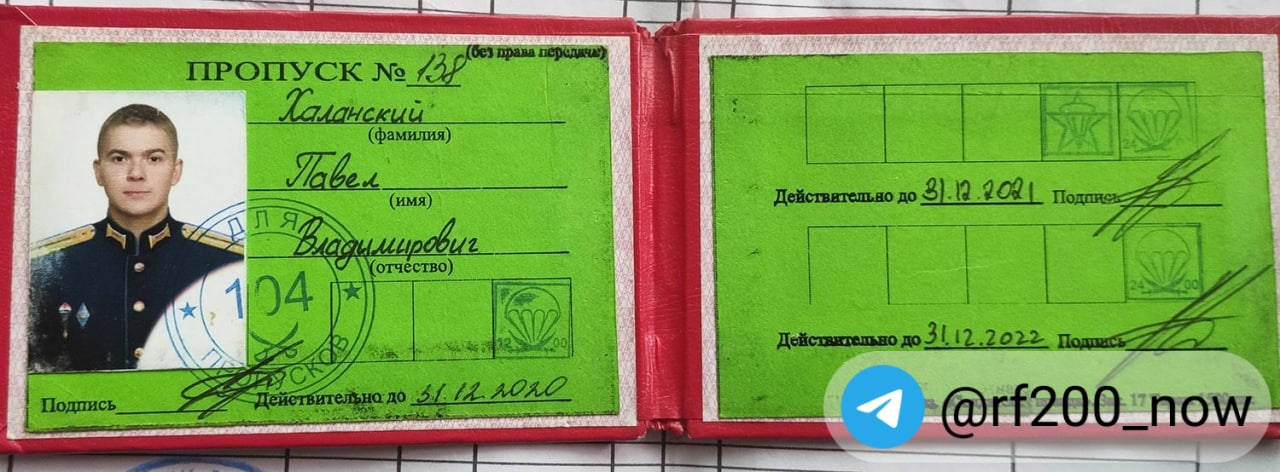 (без права передачи)
ПРОПУСК № 138
Халанский
(фамилия)
Павел
(имя)
Владимирович
(отчество)
ДЛЯ
104
ПРОПУСКОВ
12 00
Подпись
Действительно до 31.12.2020
24
Действительно до 31.12.2021 Подпись
24 00
Действительно до 31.12.2022 Подпись
@rf200_now